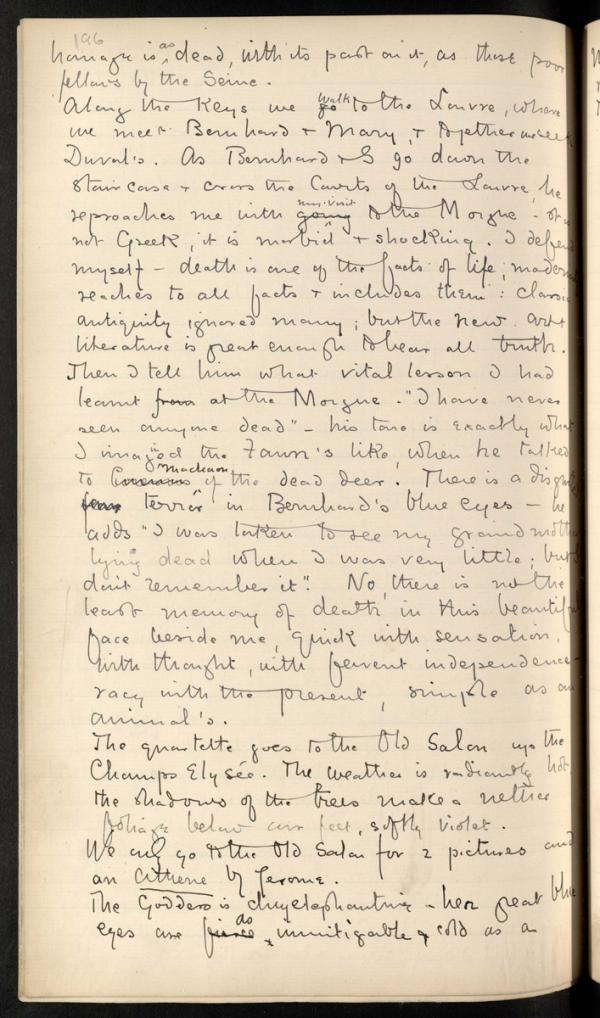 196
homage is as dead, with its past on it, as those poor
fellows by the Seine.
Along the Keys we go walk to the Louvre, where
we meet Bernhard & Mary, & together we seek
Duval's. As Bernhard & I go down the
staircase & cross the Courts of the Louvre, he
reproaches me with going my visit to the Morgue -
not Greek, it is morbid & shocking. I defend
myself - death is one of the facts of life; modern
reaches to all facts & includes them: classic
antiquity ignored many; but the new art &
literature is great enough to bear all truth.
Then I tell him what vital lesson I had
learnt from at the Morgue. "I have never
seen anyone dead" - his tone is exactly what
I imagined the Faun's like, when he talked
to of the dead deer. There is a
terror in Bernhard's blue eyes - he
adds "I was taken to see my grandmother
lying dead when I was very little; but I
don't remember it". No, there is not the
least memory of death in this beautiful
face beside me, quick with sensation,
with thought, with fervent independence -
racy with the present, simple as an
animal's.
The quartette goes to the Old Salon up the
Champs Elysée. The weather is radiantly hot
the shadows of the trees make a nether
foliage below our feet, softly violet.
We only go to the Old Salon for 2 pictures and
an Athene by Jerome.
The Goddess is chryselephantine - her great blue
eyes are fierce as immitigable & cold as a